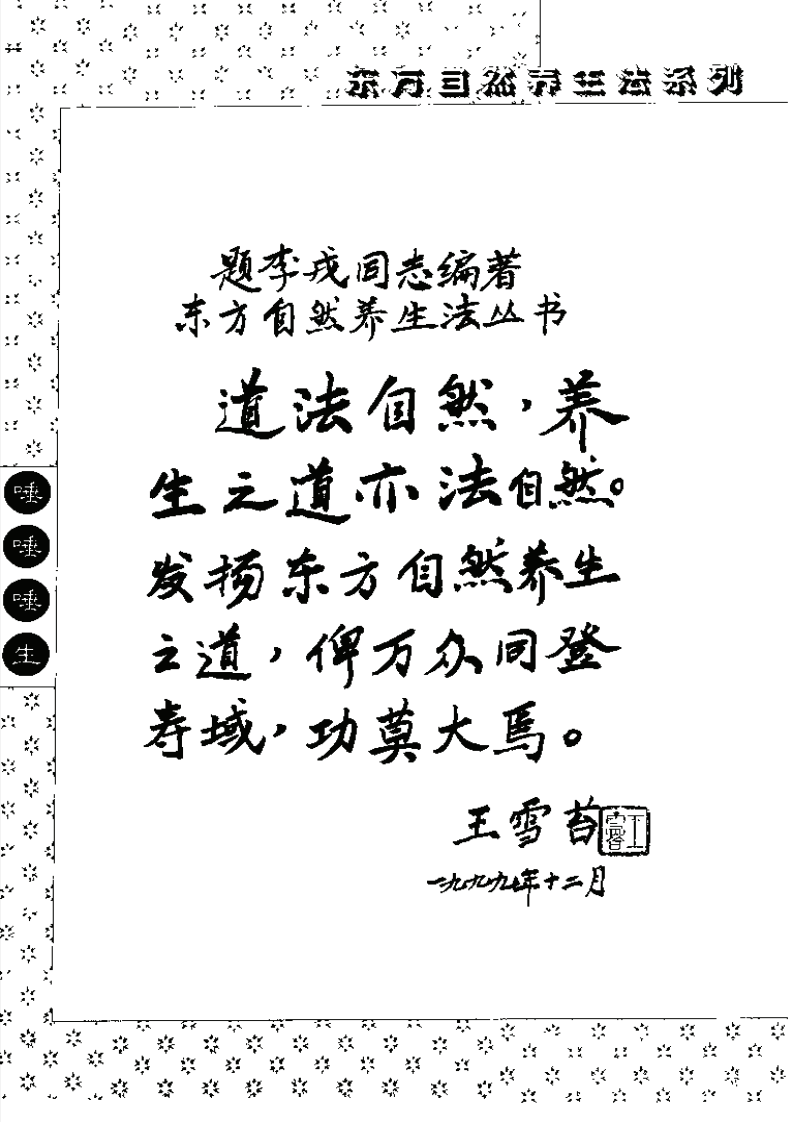 东方自然养生法系列
题李戎同志编著
东方自然养生法丛书
道法自然，养
生之道亦法自然。
发扬东方自然养生
之道，俾万众同登
寿域，功莫大焉。
王雪苔
一九九九年十二月
唾
唾
唾
生